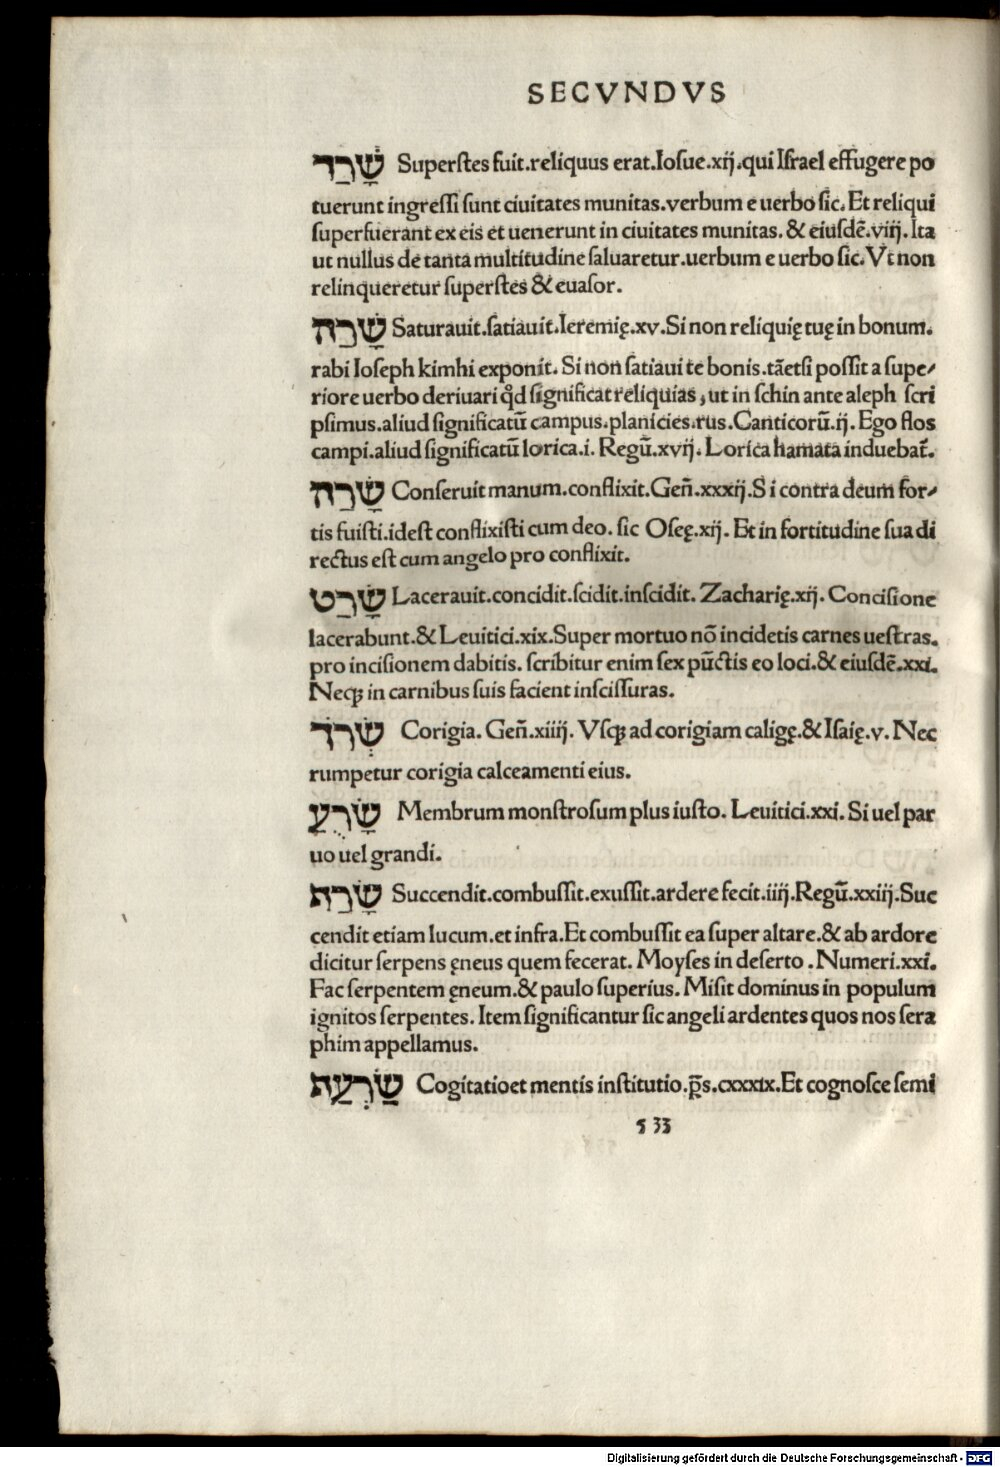 SECVNDVS
שָׂרַד Superſtes fuit.reliquus erat.Ioſue.xij.qui Iſrael effugere po
tuerunt ingreſſi ſunt ciuitates munitas.verbum e uerbo ſic. Et reliqui
ſuperfuerant ex eis et uenerunt in ciuitates munitas. & eiuſdē.viij. Ita
ut nullus de tanta multitudine ſaluaretur.uerbum e uerbo ſic. Vt non
relinqueretur ſuperſtes & euaſor.
שָׂרָה Saturauit.ſatiauit.Ieremię.xv. Si non reliquię tuę in bonum.
rabi Ioſeph kimhi exponit. Si non ſatiaui te bonis.tāetſi poſſit a ſupe⸗
riore uerbo deriuari qđ ſignificat reliquias , ut in ſchin ante aleph ſcri
pſimus.aliud ſignificatū campus.planicies.rus.Canticorū.ij. Ego flos
campi.aliud ſignificatū lorica.i. Regū.xvij. Lorica hamata induebat̄.
שָׂרָה Conſeruit manum.conflixit.Geñ.xxxij.S i contra deum for⸗
tis fuiſti.ideſt conflixiſti cum deo. ſic Oſeę.xij. Et in fortitudine ſua di
rectus eſt cum angelo pro conflixit.
שָׂרַט Lacerauit.concidit.ſcidit.inſcidit. Zacharię.xij. Conciſione
lacerabunt.& Leuitici.xix.Super mortuo nō incidetis carnes ueſtras.
pro inciſionem dabitis. ſcribitur enim ſex pūctis eo loci.& eiuſdē.xxi.
Necꝫ in carnibus ſuis facient inſciſſuras.
שְׂרֹךְ Corigia. Geñ.xiiij. Vſcꝫ ad corigiam caligę.& Iſaię.v. Nec
rumpetur corigia calceamenti eius.
שָׂרֻעַ Membrum monſtroſum plus iuſto. Leuitici.xxi. Si uel par
uo uel grandi.
שָׂרַף Succendit.combuſſit.exuſſit.ardere fecit.iiij.Regū.xxiij.Suc
cendit etiam lucum.et infra.Et combuſſit ea ſuper altare.& ab ardore
dicitur ſerpens ęneus quem fecerat. Moyſes in deſerto .Numeri.xxi.
Fac ſerpentem ęneum.& paulo ſuperius. Miſit dominus in populum
ignitos ſerpentes. Item ſignificantur ſic angeli ardentes quos nos ſera
phim appellamus.
שַׂרְעַף Cogitatioet mentis inſtitutio.p̄s.cxxxix.Et cognoſce ſemi
533
Digitalisierung gefördert durch die Deutsche Forschungsgemeinschaft - DFG